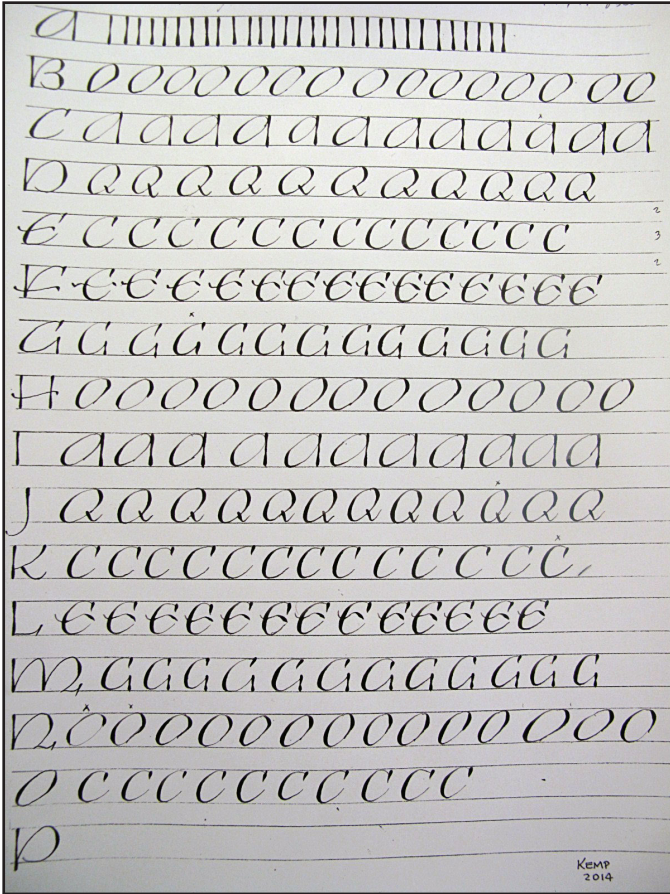 A
B O O O O O O O O O O O O O O O
C A A A A A A A A A A A A
D Q Q Q Q Q Q Q Q Q Q Q
E C C C C C C C C C C C C C
2
3
2
F E E E E E E E E E E E E E
G G G G G G G G G G G G G
H O O O O O O O O O O O O O
I A A A A A A A A A A A
J Q Q Q Q Q Q Q Q Q Q Q Q
K C C C C C C C C C C C C C
L E E E E E E E E E E E E
M G G G G G G G G G G G G
N O O O O O O O O O O O O O O
O C C C C C C C C C C C
P
KEMP
2014